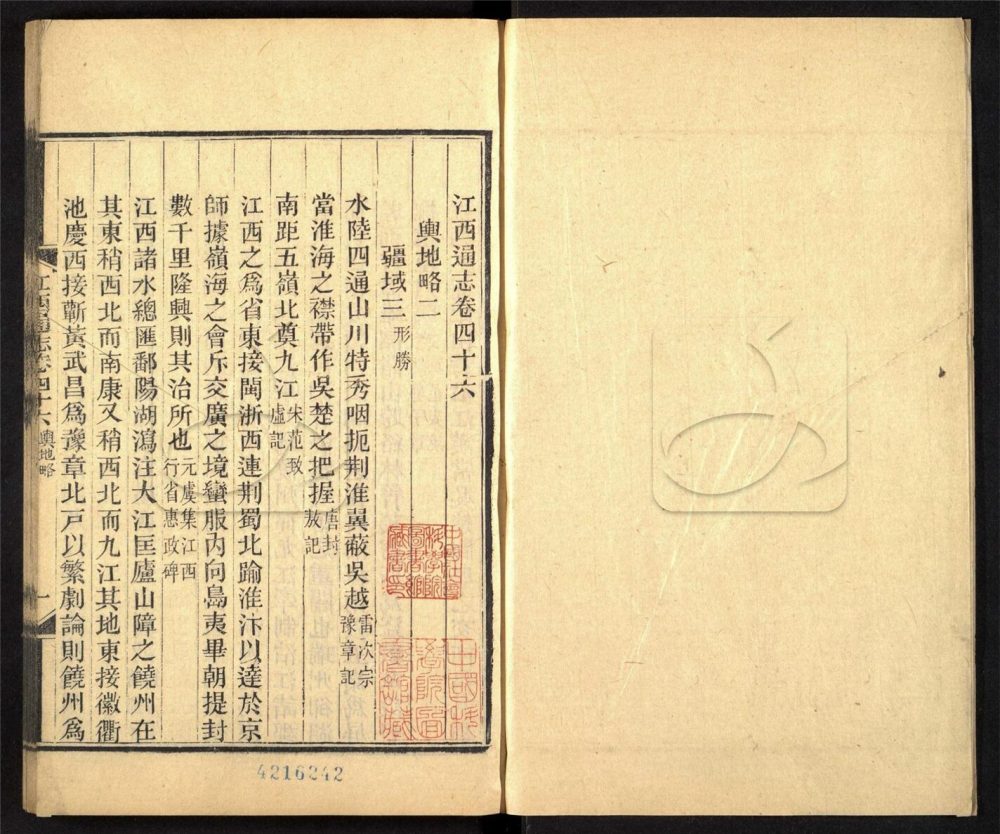 江西通志卷四十六
輿地略二
疆域三形勝
水陸四通山川特秀咽扼荆淮翼蔽吳越雷次宗豫章記
當淮海之襟帶作吳楚之把握唐封敖記
南距五嶺北奠九江宋范致虛記
江西之爲省東接閩浙西連荆蜀北踰淮汴以達於京
師據嶺海之會斥交廣之境蠻服內向島夷畢朝提封
數千里隆興則其治所也元虞集江西行省惠政碑
江西諸水總匯鄱陽湖瀉注大江匡廬山障之饒州在
其東稍西北而南康又稍西北而九江其地東接徽衢
池慶西接蘄黃武昌爲豫章北戸以繁劇論則饒州爲
江西通志卷四十六 輿地略
一
4216242